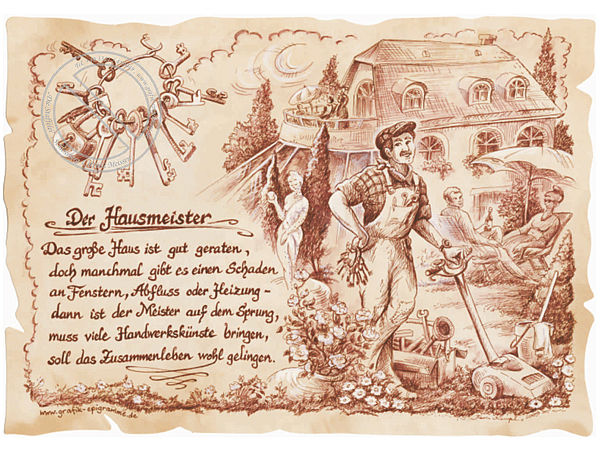 Der Hausmeister
Das große Haus ist gut geraten,
doch manchmal gibt es einen Schaden
an Fenstern, Abfluss oder Heizung -
dann ist der Meister auf dem Sprung,
muss viele Handwerkskünste bringen,
soll das Zusammenleben wohl gelingen.
www.grafik-epigramme.de